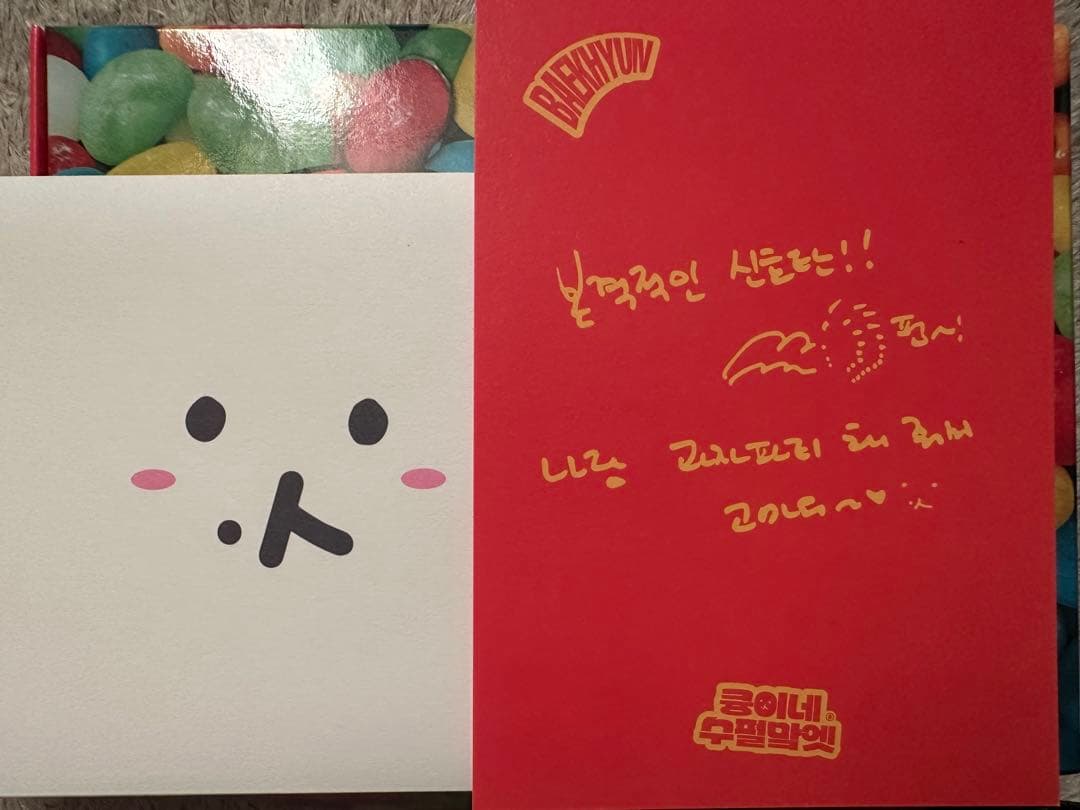 BAEKHYUN
본격적인 신호탄!!
펀~!
나랑 과자파티 해 줘서
고마워~♥
큥이네
수펄마켓